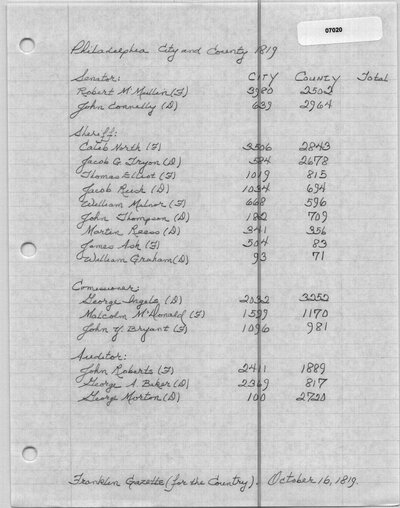 07020
Philadelphia City and County 1819
Senator: CITY COUNTY Total
Robert McMullin (F) 3980 2502
John Connelly (D) 639 2964
Sheriff:
Caleb North (F) 3506 2843
Jacob G. Tryon (D) 584 2678
Thomas Elliot (F) 1019 815
Jacob Rusk (D) 1034 694
William Milnor (F) 668 596
John Thompson (D) 182 709
Morton Reess (D) 341 356
James Ash (F) 504 83
William Graham (D) 93 71
Comissioner:
George Ingels (D) 2032 3252
Malcolm McDonald (F) 1599 1170
John Y. Bryant (F) 1096 981
Auditor:
John Roberts (F) 2411 1889
George A. Baker (D) 2369 817
George Morton (D) 100 2720
Franklin Gazette (for the Country). October 16, 1819.